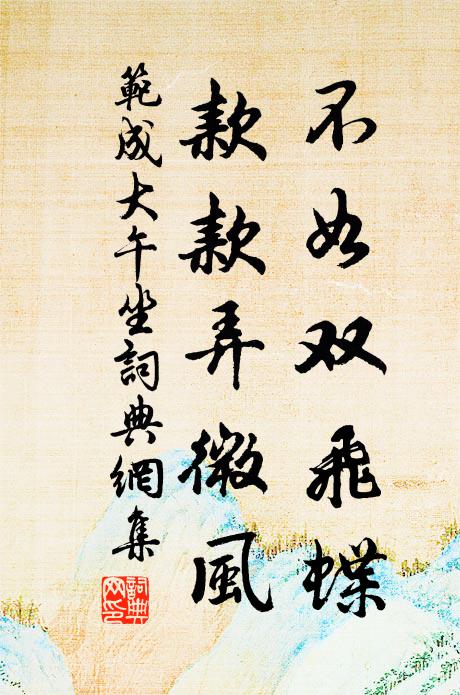 不如双飛蝶
款款弄微風
範成大午坐詞典網集
詞典
网印